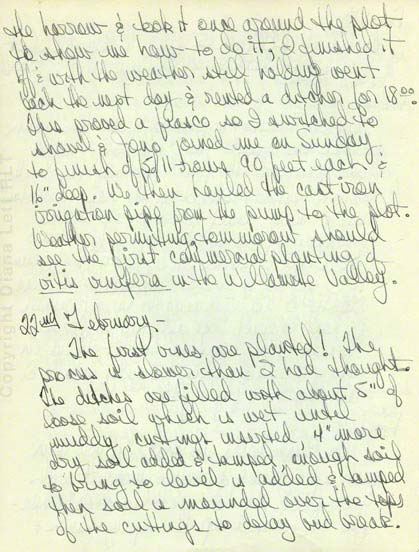 the harrow & took it once around the plot
to show me how to do it, I finished it
& with the weather still holding went
back the next day & rented a ditcher for 18.00.
This proved a fiasco so I switched to
shovel & joined me on Sunday
to finish off 11 rows 90 feet each &
16" deep. We then hauled the cast iron
irrigation pipe from the pump to the plot.
Weather permitting tommorow should
see the first commercial planting of
vitis vinifera in the Willamette Valley.
22nd February-
The first vines are planted! The
process is slower than I had thought.
The ditches are filled with about 5" of
loose soil which is wet until
muddy, cuttings inserted, 4" more
dry soil added & tamped, enough soil
to bring to level is added & tamped
then soil is mounded over the tops
of the cuttings to delay bud break.
Copyright Diana Lett RLT